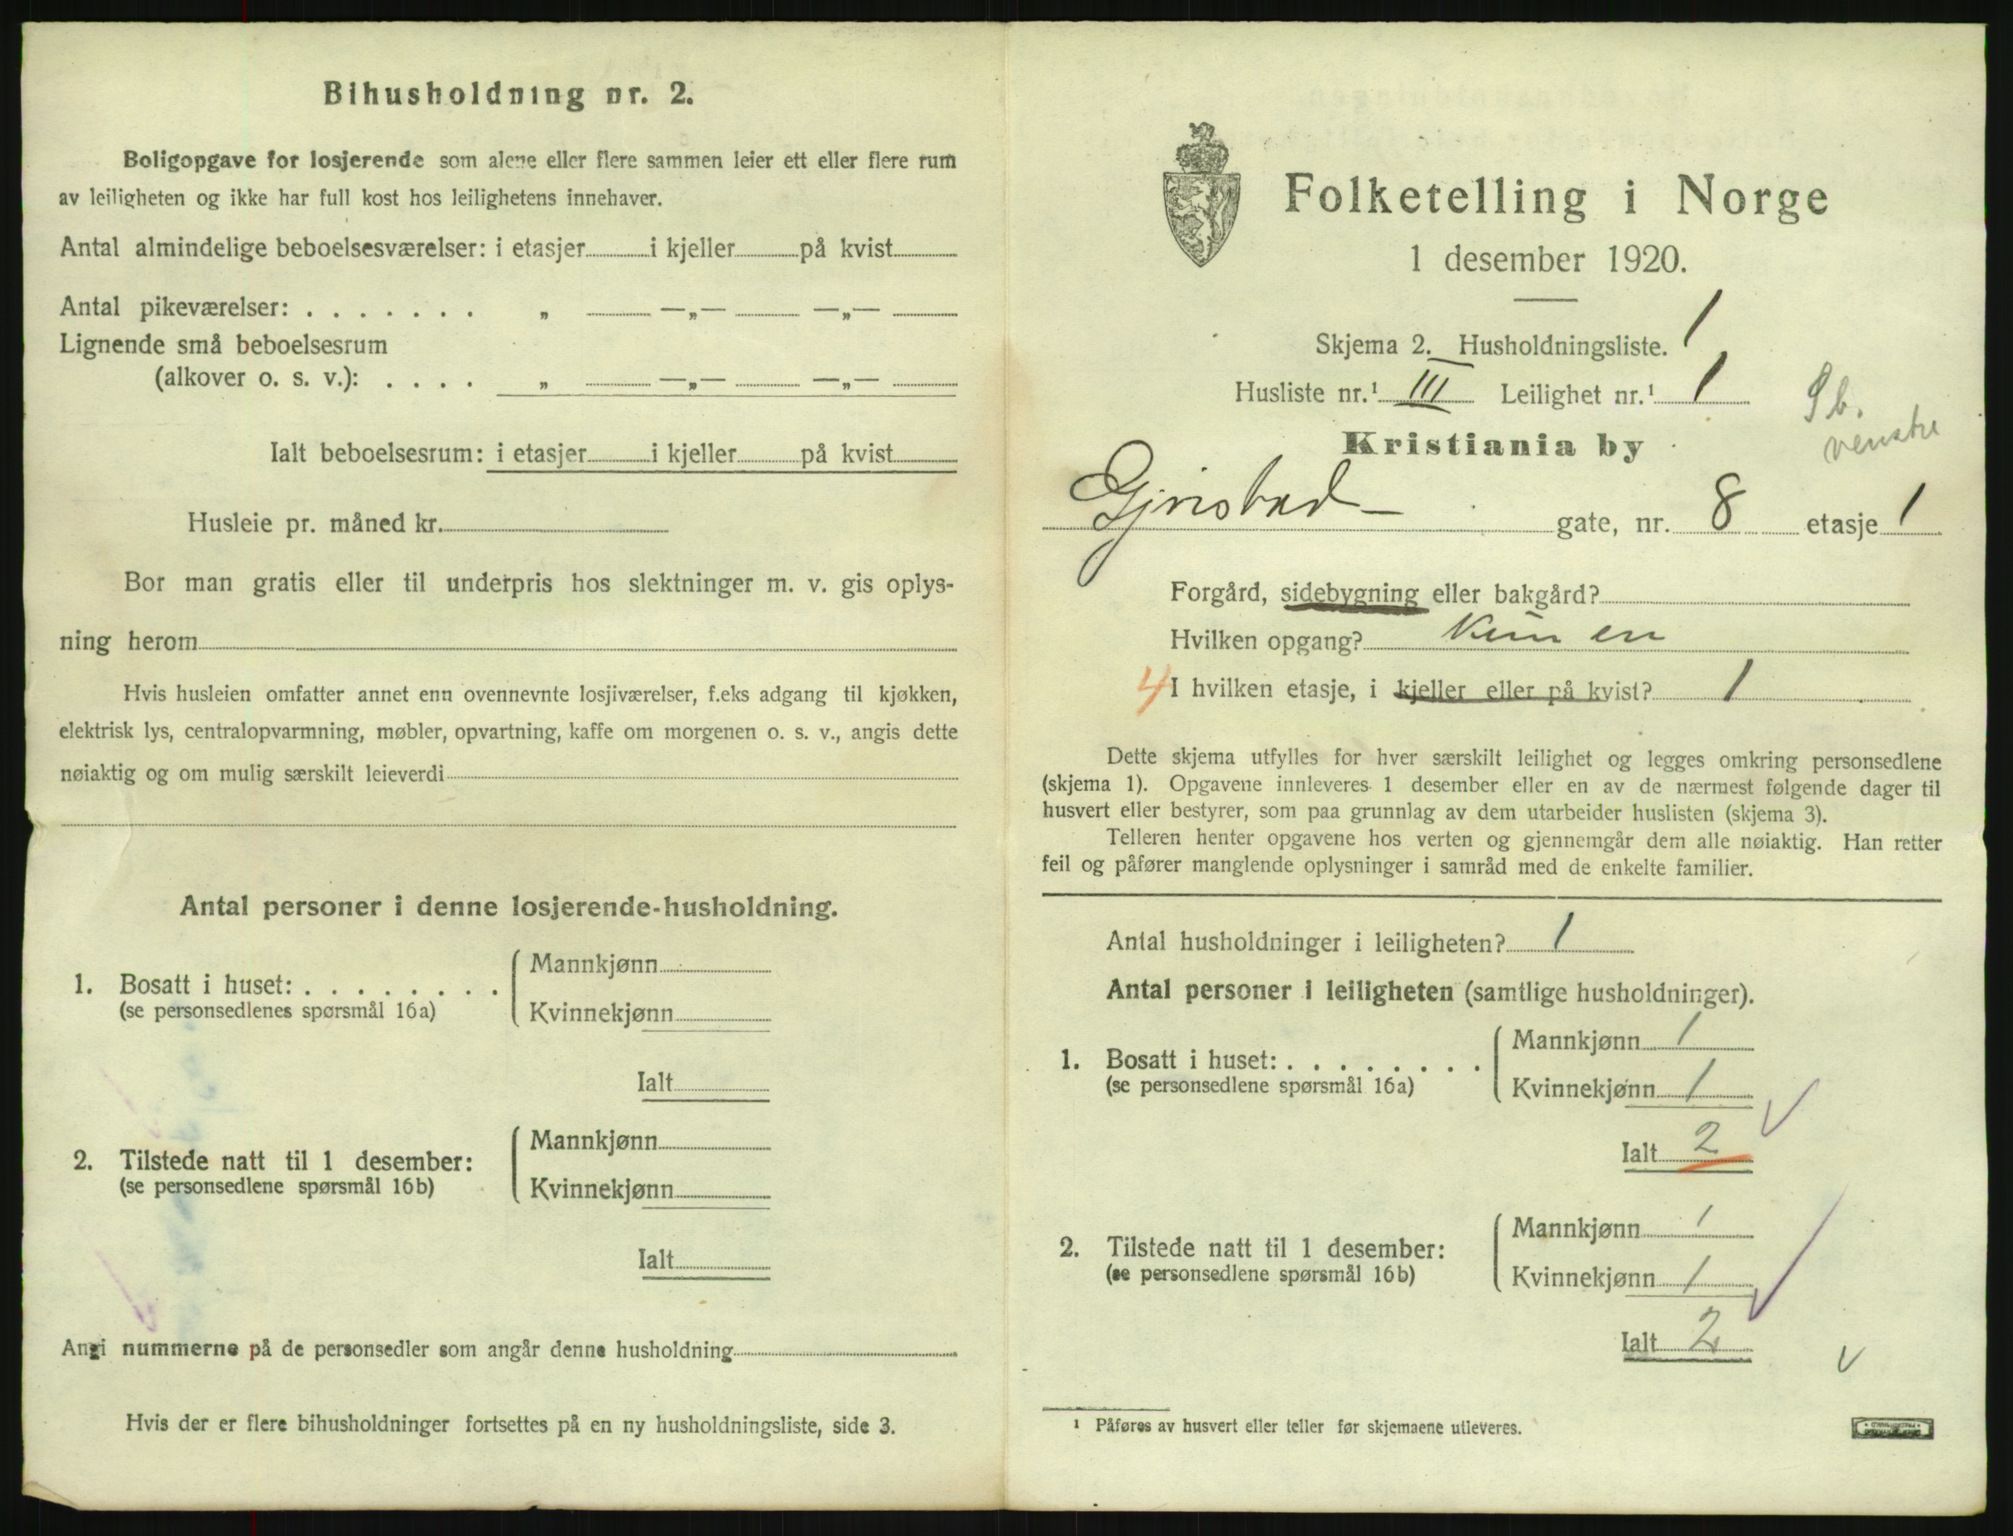 Bihusholdning nr. 2.
Boligopgave for losjerende som alene eller flere sammen leier ett eller flere rum
av leiligheten og ikke har full kost hos leilighetens innehaver.
Antal almindelige beboelsesværelser: i etasjer i kjeller på kvist
Antal pikeværelser: . . . . . . . „ —„— —„—
Lignende små beboelsesrum
(alkover o. s. v.): . . . . „ —„— —„—
Ialt beboelsesrum: i etasjer i kjeller på kvist
Husleie pr. måned kr.
Bor man gratis eller til underpris hos slektninger m. v. gis oplys-
ning herom
Hvis husleien omfatter annet enn ovennevnte losjiværelser, f.eks adgang til kjøkken,
elektrisk lys, centralopvarmning, møbler, opvartning, kaffe om morgenen o. s. v., angis dette
nøiaktig og om mulig særskilt leieverdi
Antal personer i denne losjerende-husholdning.
1. Bosatt i huset: . . . . . . . .
(se personsedlenes spørsmål 16a)
Mannkjønn
Kvinnekjønn
Ialt
2. Tilstede natt til 1 desember:
(se personsedlene spørsmål 16b)
Mannkjønn
Kvinnekjønn
Ialt
Angi nummerne på de personsedler som angår denne husholdning
Hvis der er flere bihusholdninger fortsettes på en ny husholdningsliste, side 3.
Folketelling i Norge
1 desember 1920.
Skjema 2. Husholdningsliste. 1
Husliste nr.¹ III Leilighet nr.¹ 1
Sb.
venstre
Kristiania by
gate, nr. 8 etasje 1
Forgård, sidebygning eller bakgård?
Hvilken opgang? Kun en
4 I hvilken etasje, i kjeller eller på kvist? 1
Dette skjema utfylles for hver særskilt leilighet og legges omkring personsedlene
(skjema 1). Opgavene innleveres 1 desember eller en av de nærmest følgende dager til
husvert eller bestyrer, som paa grunnlag av dem utarbeider huslisten (skjema 3).
Telleren henter opgavene hos verten og gjennemgår dem alle nøiaktig. Han retter
feil og påfører manglende oplysninger i samråd med de enkelte familier.
Antal husholdninger i leiligheten? 1
Antal personer i leiligheten (samtlige husholdninger).
1. Bosatt i huset: . . . . . . . .
(se personsedlene spørsmål 16a)
Mannkjønn 1
Kvinnekjønn 1
Ialt 2
2. Tilstede natt til 1 desember:
(se personsedlene spørsmål 16b)
Mannkjønn 1
Kvinnekjønn 1
Ialt 2
¹ Påføres av husvert eller teller før skjemaene utleveres.